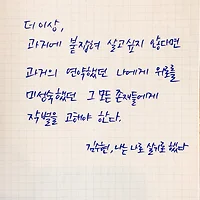 더 이상,
과거에 붙잡혀 살고 싶지 않다면
과거의 연약했던 나에게 위로를
미성숙했던 그 모든 존재들에게
작별을 고해야 한다.
김수현, 나는 나로 살기로 했다